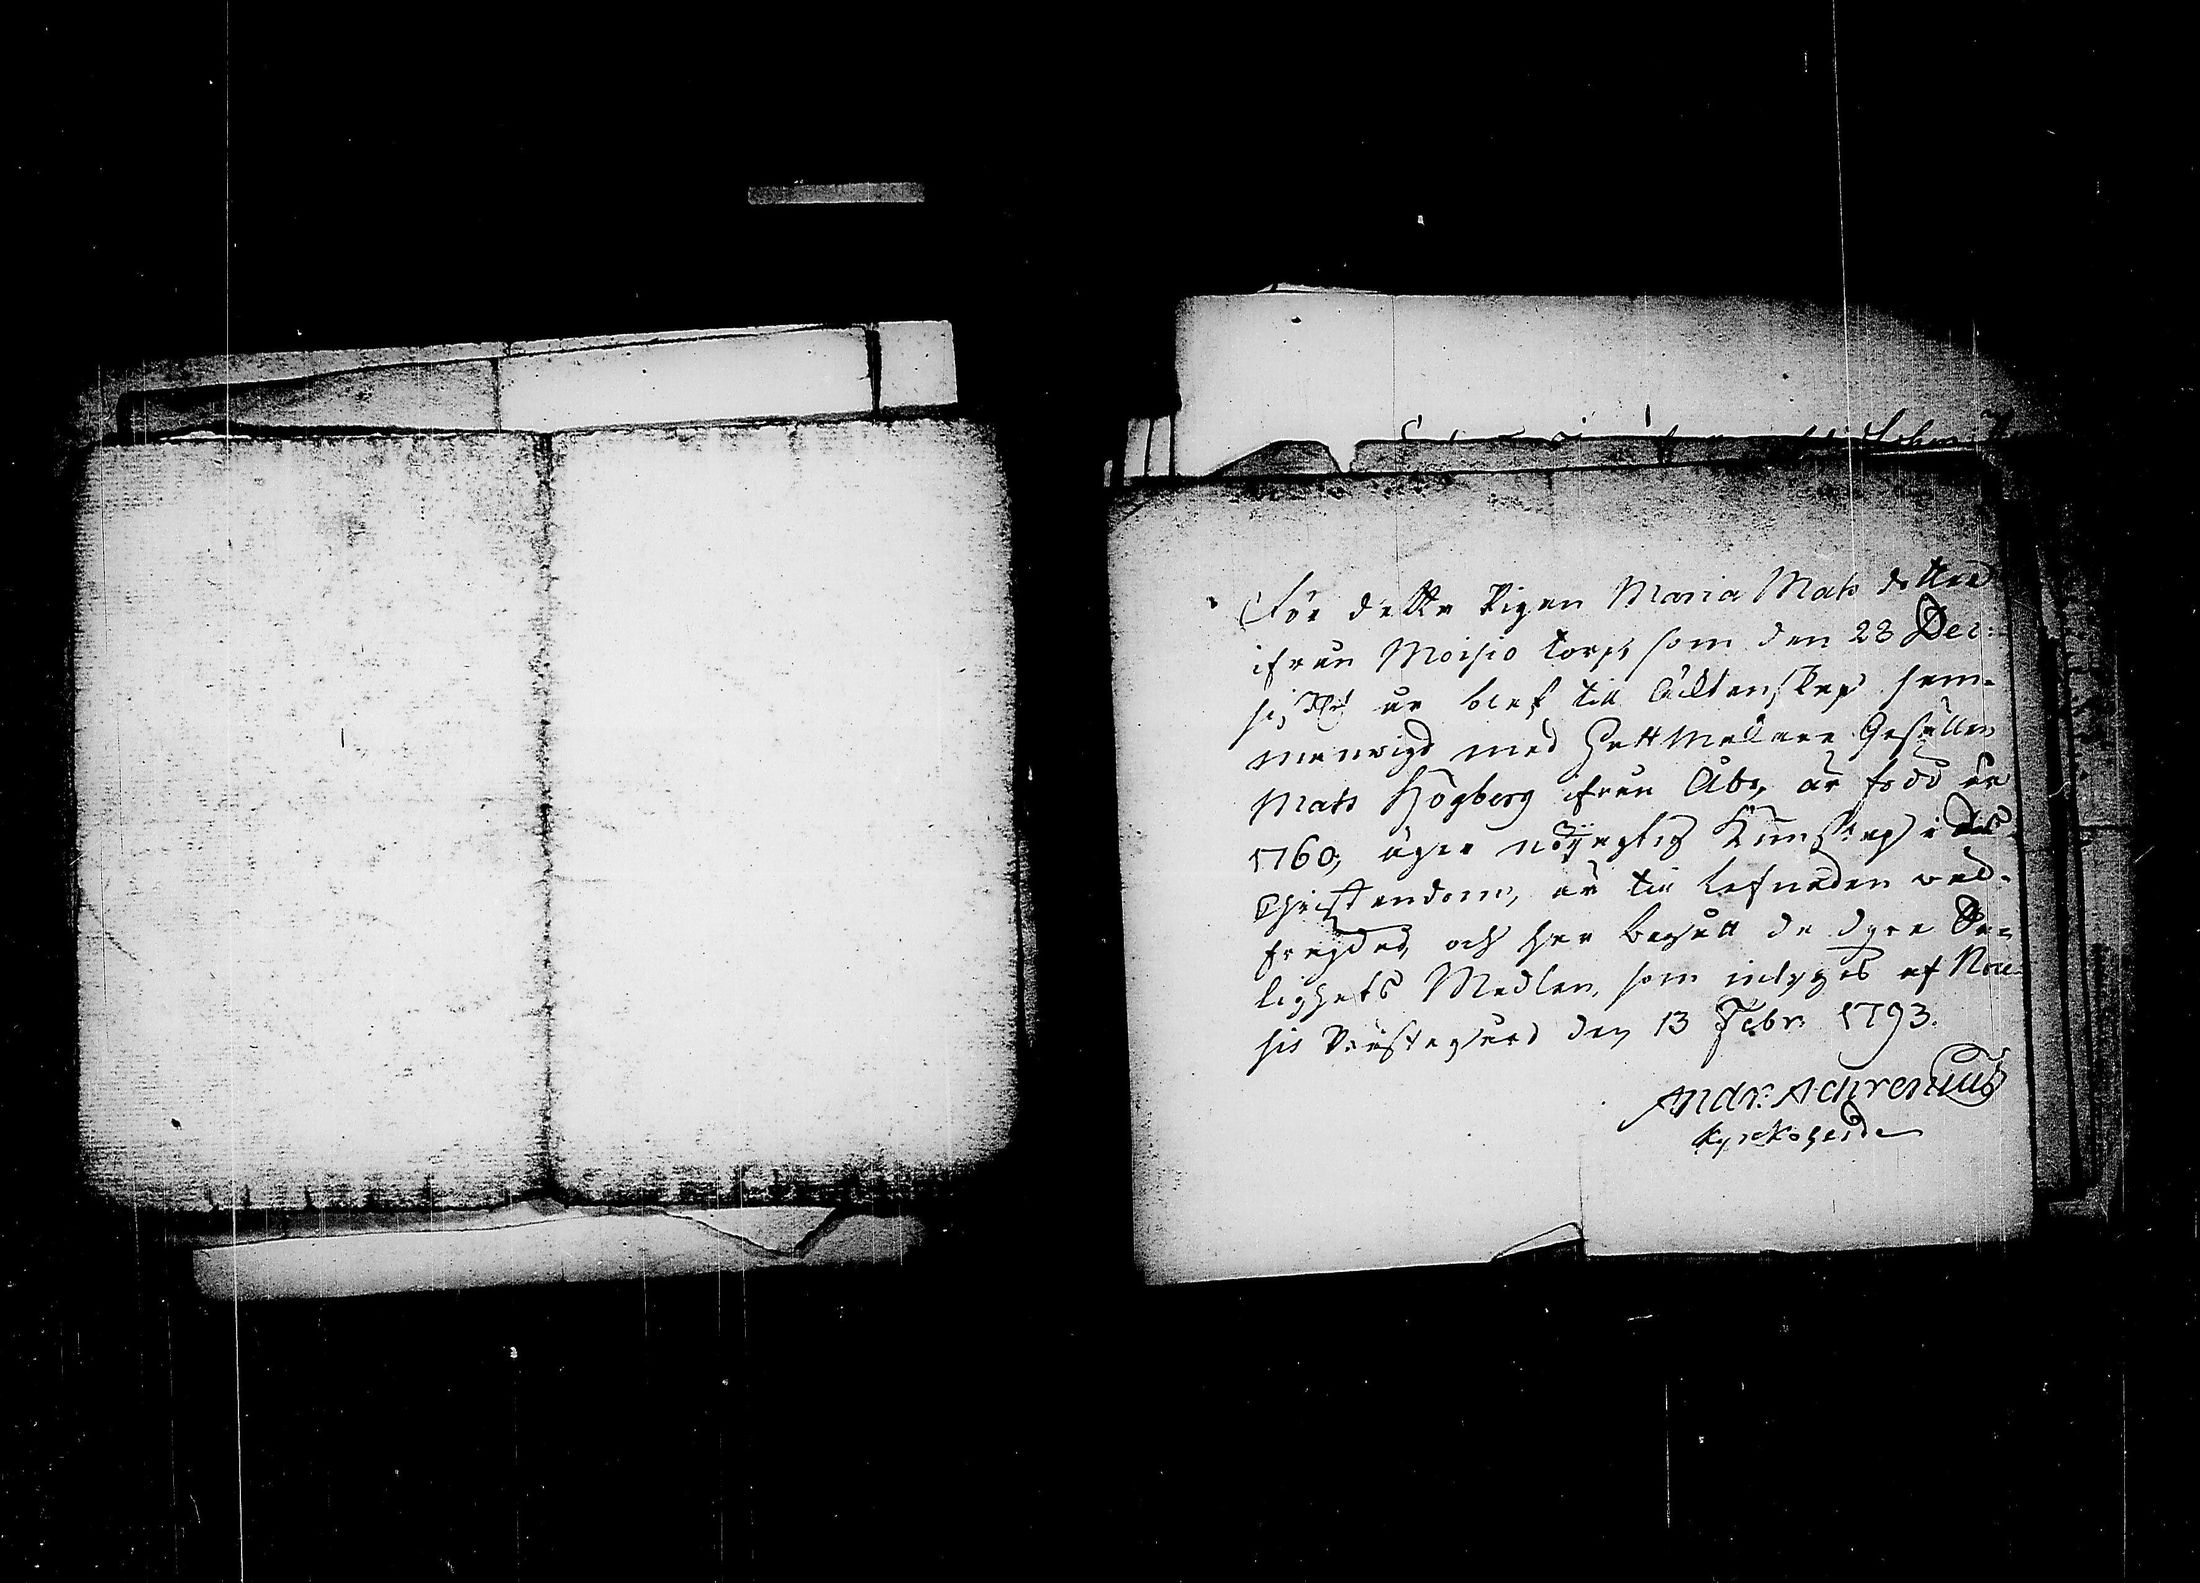 Före detta Pigan Maria Mats dotter
ifrån Moisio torp, som den 28 Dec:
sistl. år blef till Ächtenskap sam-
manvigd med Hattmakare Gesällen
Mats Högberg ifrån Åbo, är född år
1760, äger nöijagtig Kunskap i sin
Christendom, är till lefnaden wäl-
frejdad, och har begått de dyra Sa-
lighets Medlen, som intygas af Nou-
sis Prästegård den 13 Febr. 1793.
Andr: Achrenius
Kyrkoherde